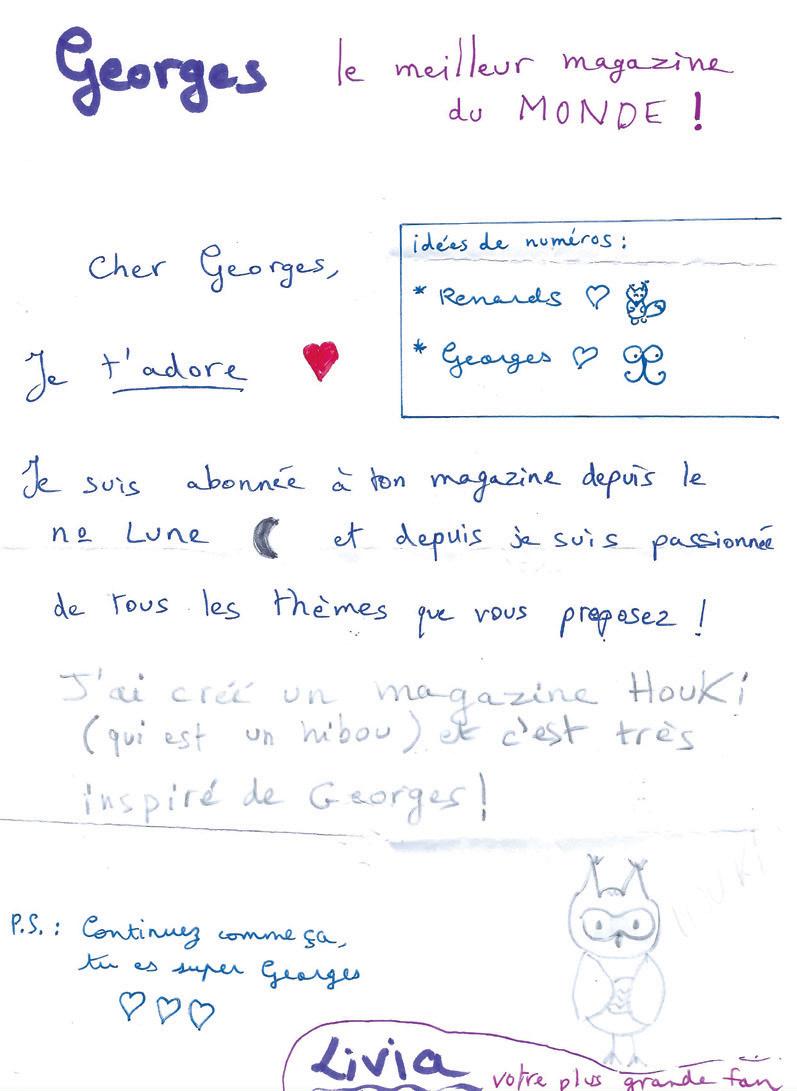 Georges le meilleur magazine
du MONDE !
Cher Georges,
Je t'adore
idées de numéros :
* Renards
* Georges
Je suis abonnée à ton magazine depuis le
nº Lune et depuis je suis passionnée
de tous les thèmes que vous proposez !
J'ai créé un magazine HouKi
(qui est un hibou) et c'est très
inspiré de Georges !
HOUKI
P.S. : Continuez comme ça,
tu es super Georges
Livia votre plus grande fan